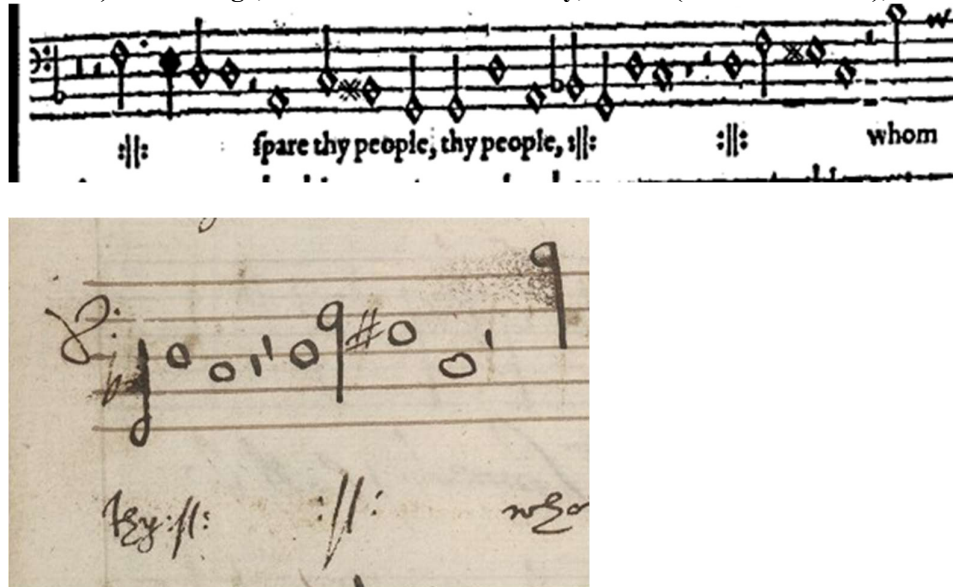 :||: ſpare thy people, thy people, :||: :||: whom
thy :||: :||: who